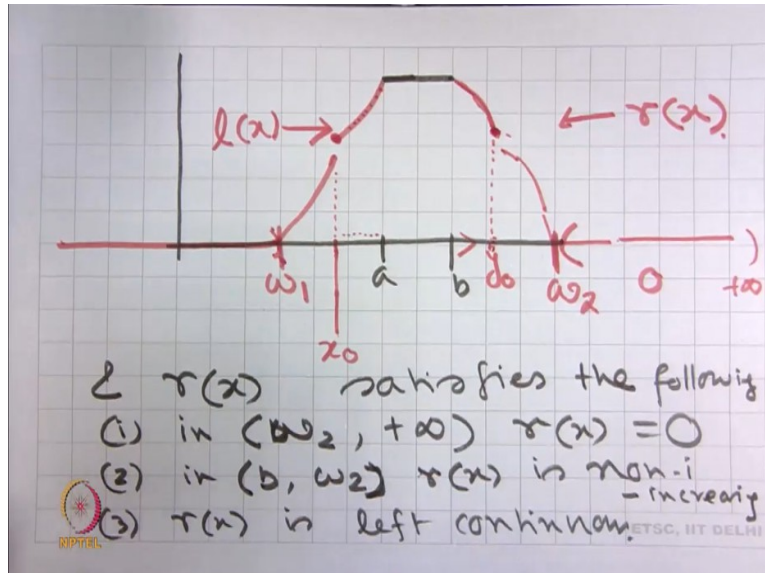 l(x)→ ← r(x).
ω1 a b d0 ω2 0 +∞
x0
& r(x) satisfies the following
(1) in (ω2, +∞) r(x) = 0
(2) in (b, ω2] r(x) is non-i
-increasing
(3) r(x) is left continuous.
NPTEL
ETSC, IIT DELHI